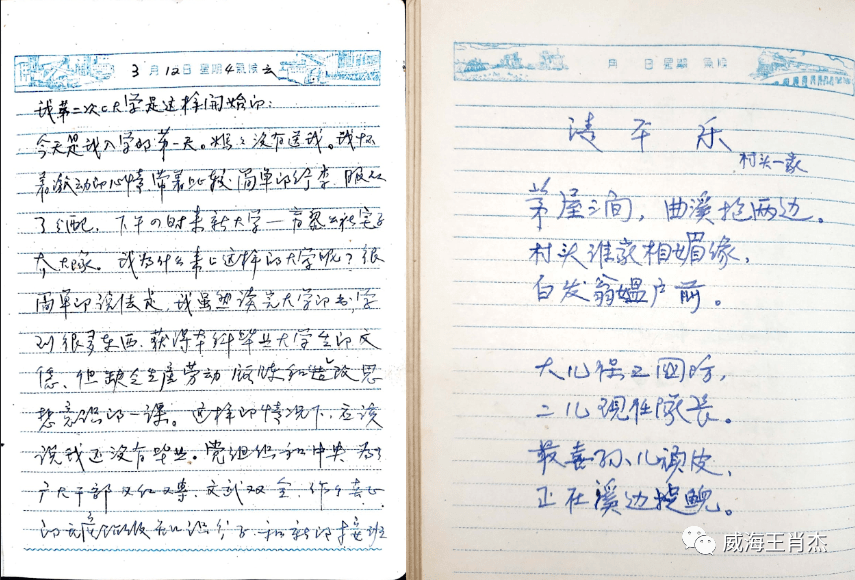 3月12日星期4气候云
我第二次上大学是这样开始的：
今天是我入学的第一天。没有送我。我怀
着激动的心情带着比较简单的行李，服从
了分配，下午4时来新大学一
大队。我为什么来上这样的大学呢？很
简单的说法是，我虽然读完大学的书，学
到很多东西，获得本科毕业大学生的文
凭，但缺乏生产劳动锻炼和改思
想意识的一课。这样的情况下，应该
说我还没有毕业。党组织和中央为了
广大干部又红又专，文武双全，作个真正
的知识分子和新的接班
月 日 星期 气候
清平乐
村头一家
茅屋三间，曲溪抱两边。
村头谁家相媚缘，
白发翁媪户前。
大儿保卫国防，
二儿现任队长。
最喜孙儿顽皮，
正在溪边捉鲍。
威海王肖杰